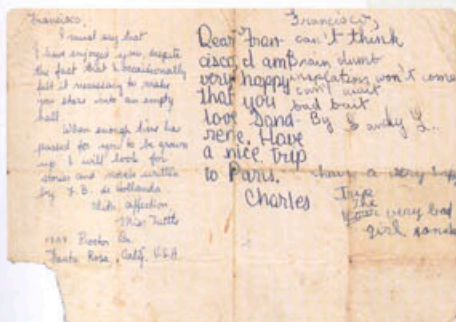 Francisco,
I must say that
I have enjoyed you, despite
the fact that I occasionally
felt it necessary to make
you stare into an empty
hall.
When enough time has
passed for you to be grown
up I will look for
stories and novels written
by F. B. de Hollanda
With affection,
Miss Tuttle
Proctor Dr.
Santa Rosa, Calif. U.S.A.
Dear Fran-
cisco, I am
very happy
that you
love Sand-
rene. Have
a nice trip
to Paris.
Charles
Francisco,
can't think
Brain dumb
inspiration won't come
can't wait
bad bait
By Sandy L.
have a very
Trip
The
very bad
girl